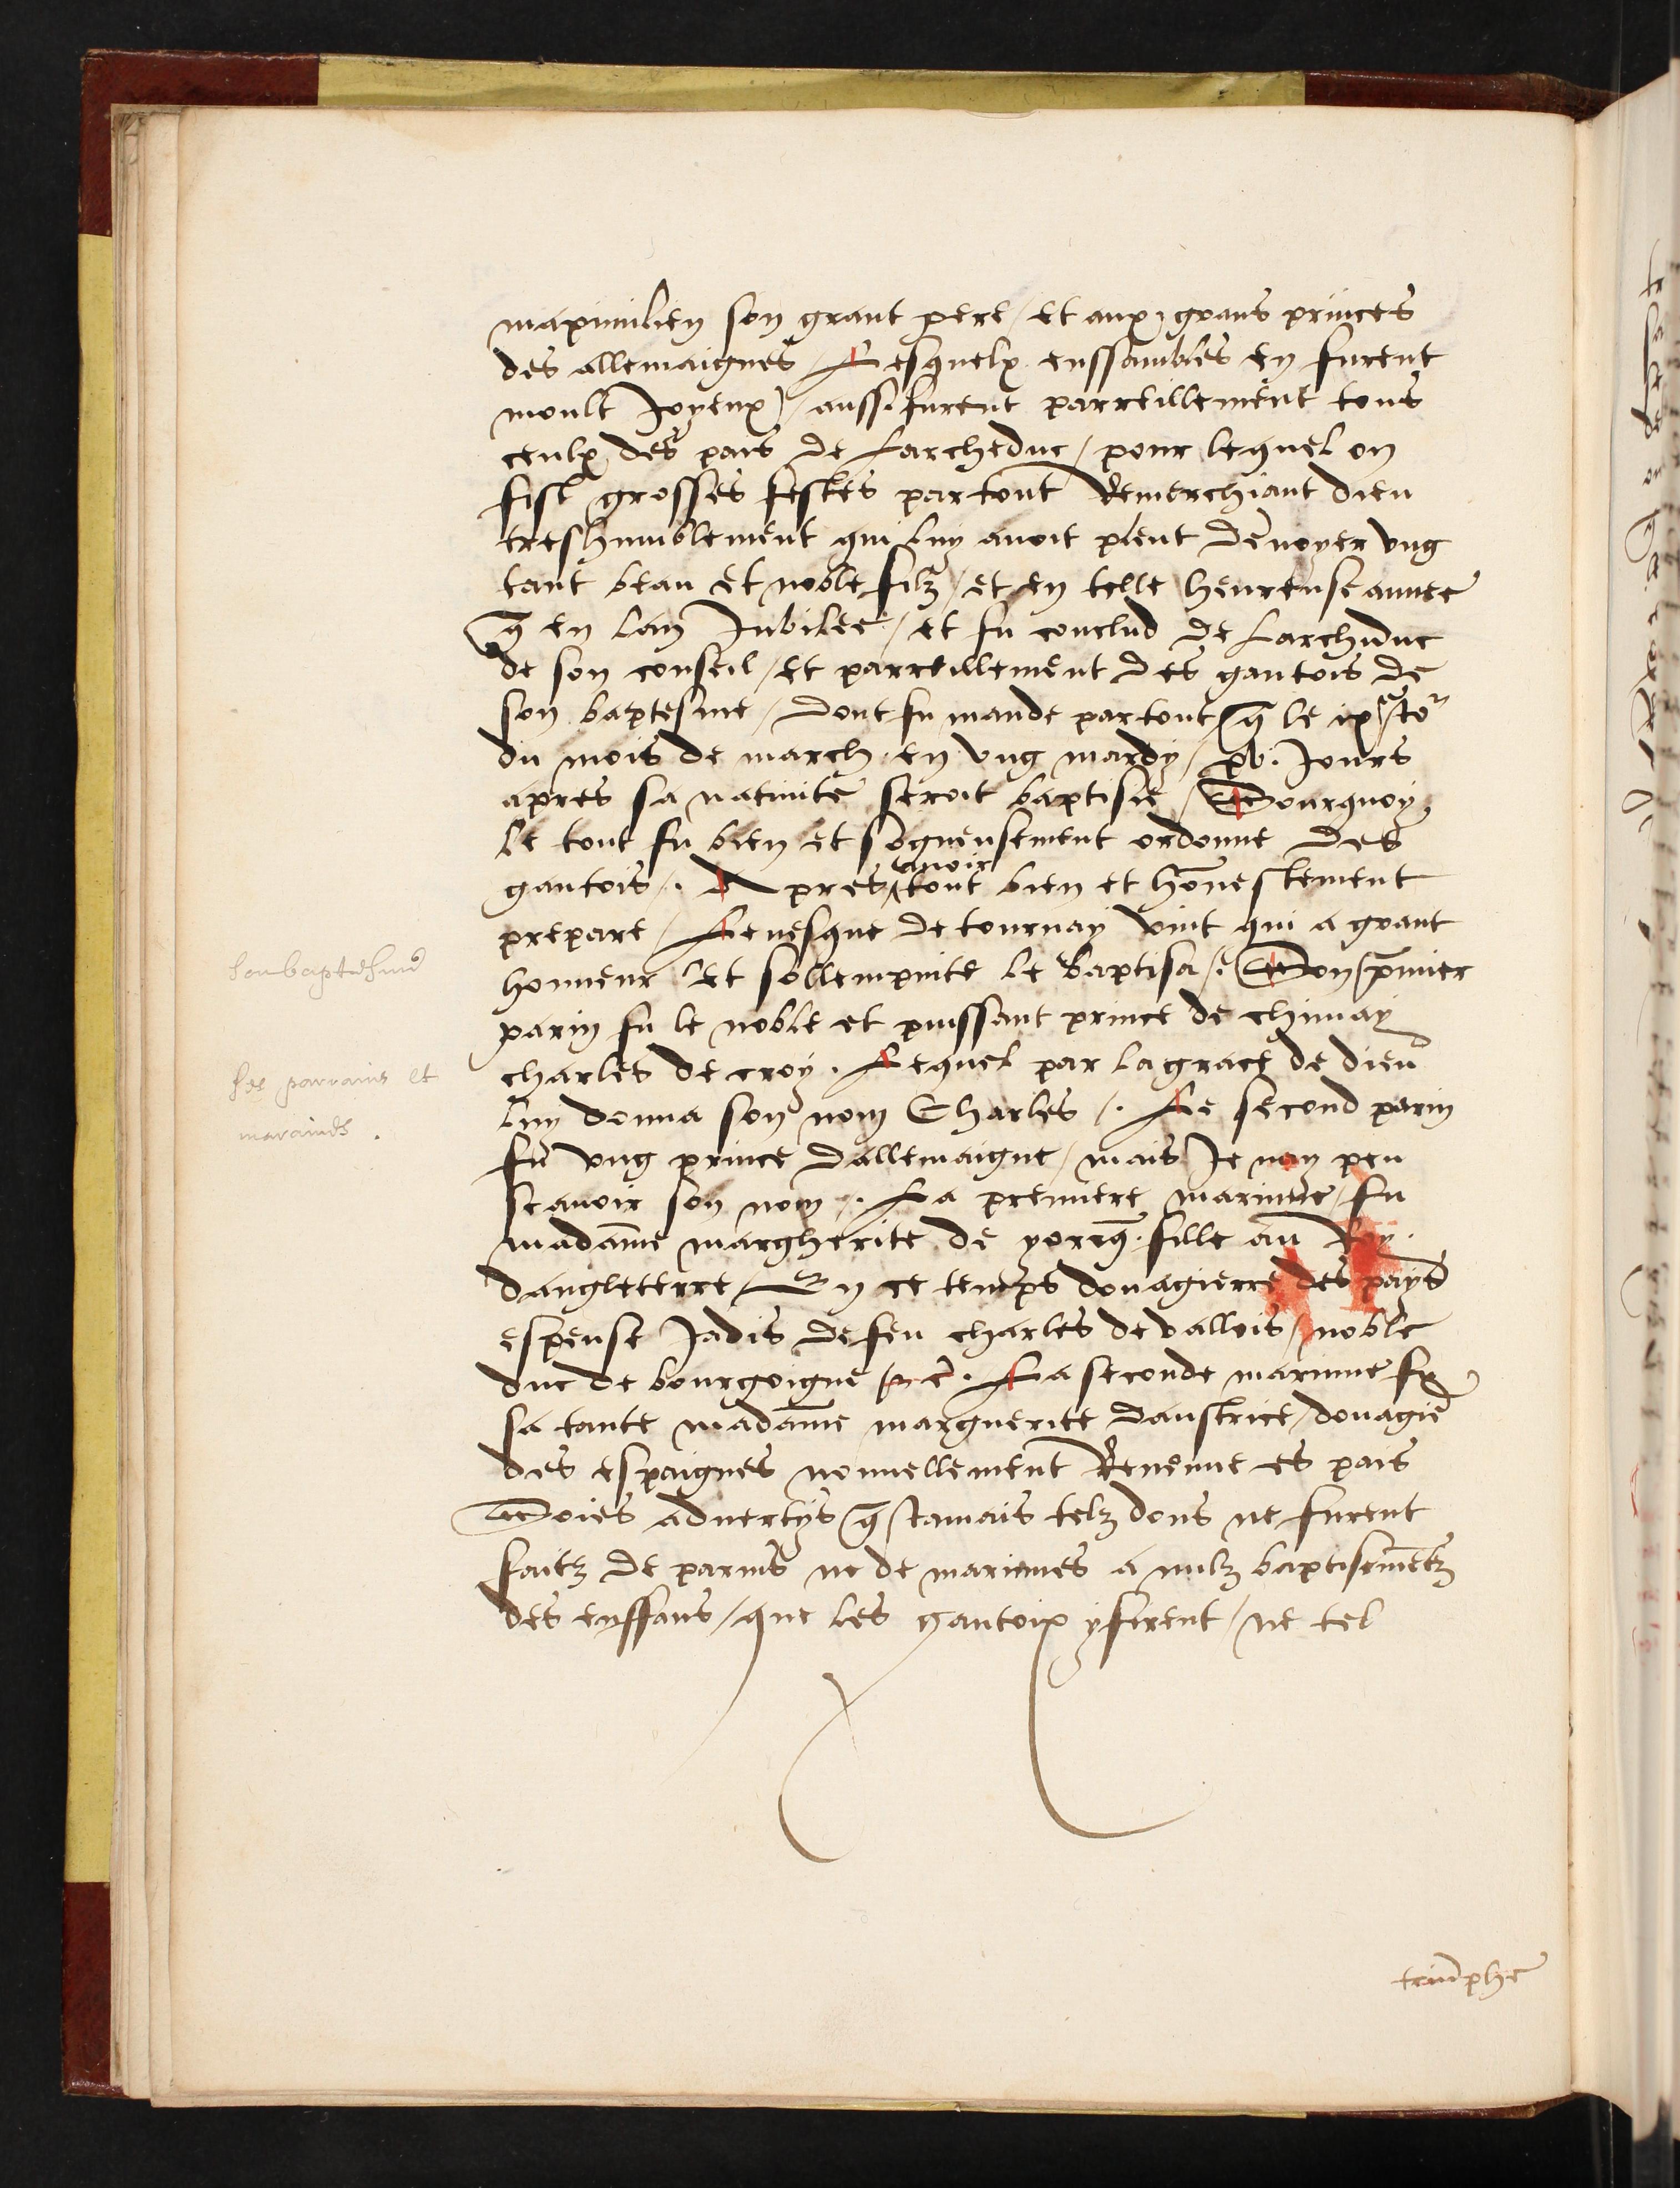 maximilien son grant pere / et aux grans princes
des allemaignes / Lesquelx enssambles en furent
moult Joyeux / aussi furent parreillement tous
ceulx des pais de Larcheduc / pour lequel on
fist grosses festes partout Remerchiant dieu
treshumblement qui luy avoit pleut denvoyer ung
tant beau et noble filz / et en telle heureuse annee
q̃ en lan Jubilee / et fu conclud de Larchiduc
de son conseil / et parreillement des gantois de
son baptesme / dont fu mande partout q̃ le ixᵉ Joʳ
du mois de march en ung mardy / xv. Jours
apres sa nativite seroit baptisie / Pourquoy
le tout fu bien et sogneusement ordonne des
gantois /. Apres avoir tout bien et hõnestement
prepare / Levesque de tournay vint qui a grant
honneur et sollempnite le baptisa /. Son p̃mier
parin fu le noble et puissant prince de chimay
charles de croy . Lequel par la grace de dieu
luy donna son nom Charles /. Le second parin
fu ung prince dallemaigne / mais Je nay peu
scavoir son nom /. La premiere marinne / fu
madãme margherite de yorcq̃ . fille au Roy .
dangleterre / En ce temps douagierre des pays
espeuse Jadis de feu charles de vallois / noble
duc de bourgoigne /
La seconde marinne fu
sa tante madãme marguerite daustrice / douagiẽ
des espaignes nouvellement Revenue es pais
Soies advertys q̃ Jamais telz dons ne furent
faitz de parins ne de marinnes a nulz baptisemẽtz
des enffans / que les gantoix y firent / ne tel
triũphe
son baptesme
ses parrains et
maraines .